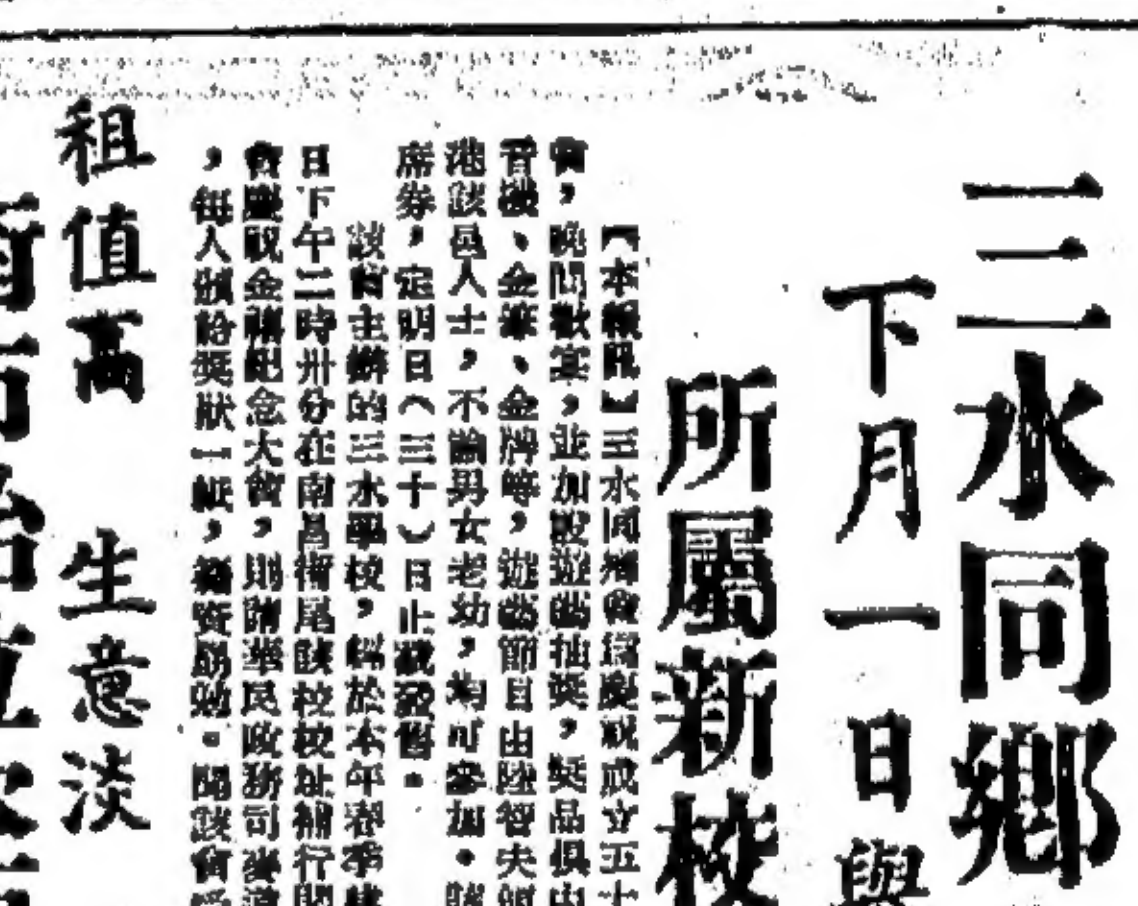 三水同鄉
下月一日與
所屬新校
【本報訊】三水同鄉會為慶祝成立五十
會，晚間歡宴，並加設遊藝抽獎，獎品俱由
音機、金筆、金牌等，遊藝節目由陸智夫
港該邑人士，不論男女老幼，均可參加。
席券，定明日（三十）日止截發售。
該會主辦的三水學校，經於本年春季
日下午二時卅分在南昌街尾該校校址補行開
會慶祝金禧紀念大會，則請華民政務司麥道
，每人頒給獎狀一紙，藉資勛勉。聞該會
租值高 生意淡